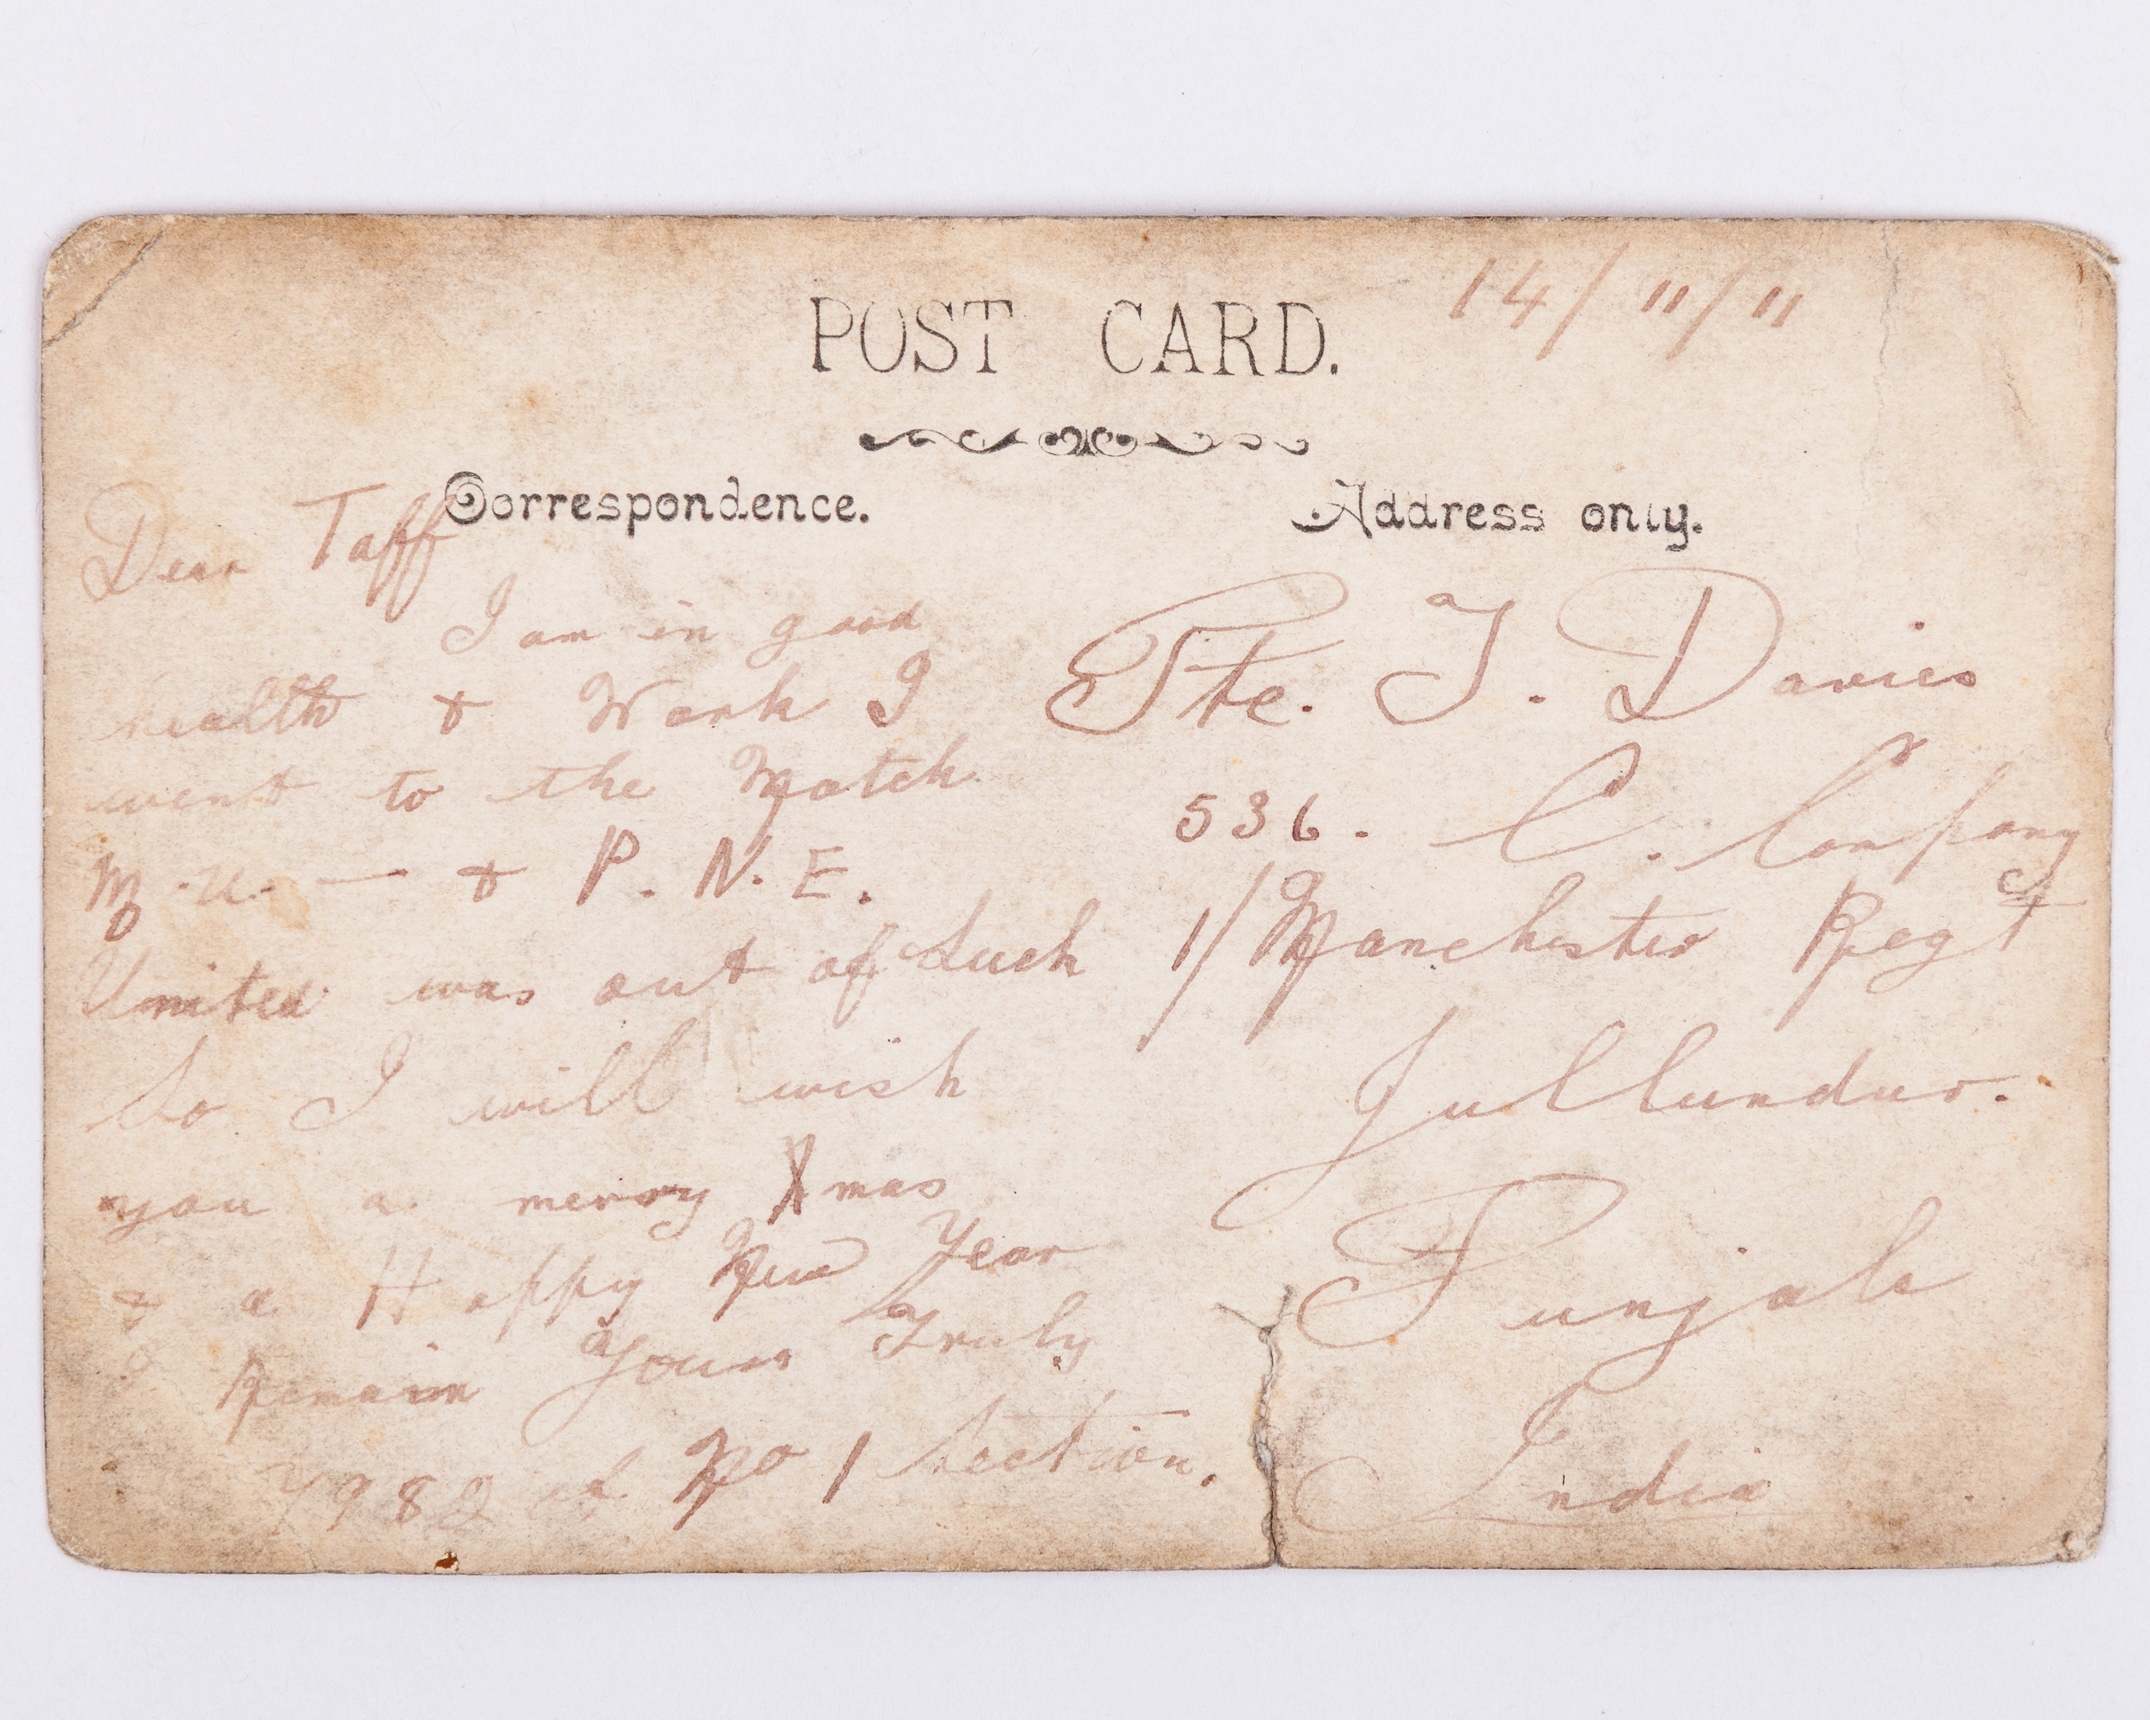 POST CARD.
14/11/11
Correspondence.
Address only.
Dear Taff
I am in good
health & Work I
went to the Match
M.U. — & P.N.E.
United was out of Luck
So I will wish
you a merry Xmas
& a Happy New Year
I Remain Yours Truly
7982 of No 1 Section.
Pte. J. Davies
536. C. Company
1/Manchester Regt
Jullundur.
Punjab
India